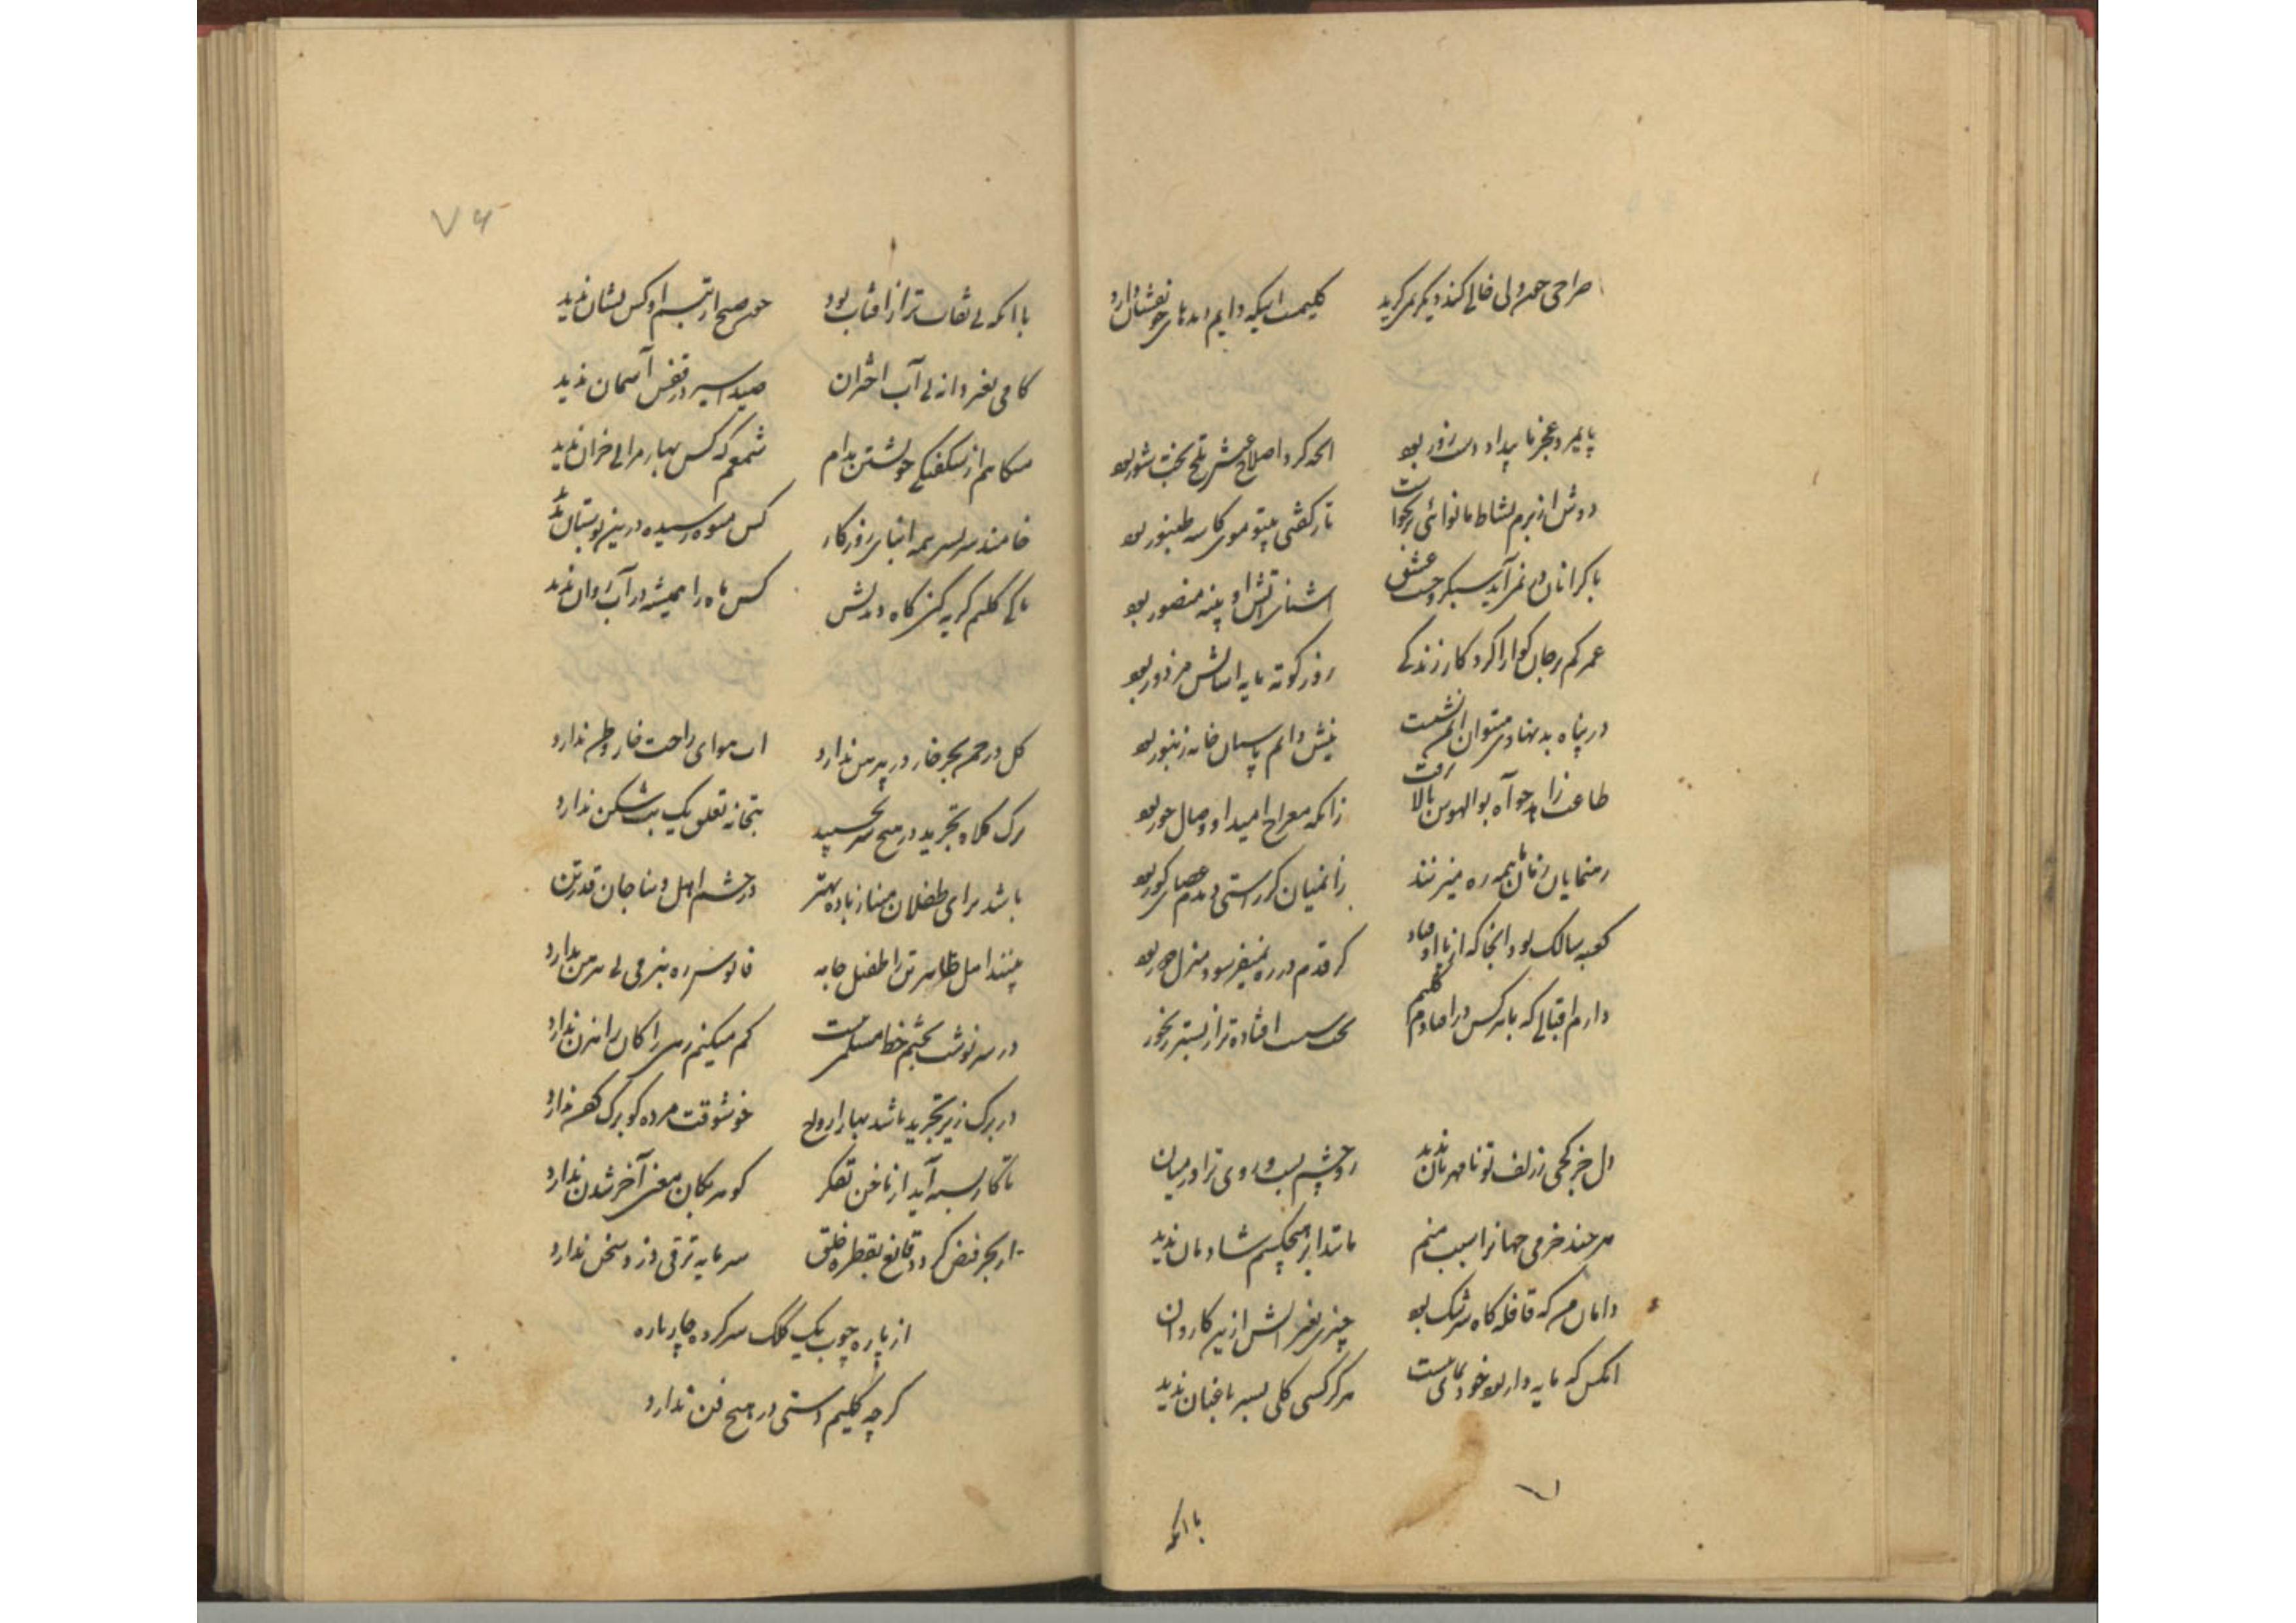 صراحی چون ولی خالی کند دیگر نمی‌گرید کلیمست اینکه دایم
پایمرد عجز ما بیداد دست زور بود الحذر کرد اصلاح عیش تلخ بخت شور بود
دوش از بزم نشاط ما نوائی برنخواست تار گفتی بیتو موی کاسه طنبور بود
با گرانان در نمی‌آید سبکروحیست عشق آشنای آتش او پنبه منصور بود
عمر کم بر جان گوارا کرد کار زندگی روز کوته مایه آسایش مزدور بود
در پناه بد نهادی میتوان ایمن نشست نیش دایم پاسبان خانه زنبور بود
طاعت زاهد چو آه بوالهوس بالا نرفت زانکه معراج امید او وصال حور بود
رهنمایان زمان ما همه ره میزنند زانمیان گر راستی دیدم عصای کور بود
کعبه سالک بود آنجا که از پا اوفتاد گر قدم در ره نمیفرسود منزل دور بود
دارم اقبالی که با هرکس در افتادم کلیم افتاده‌تر از بستر رنجور
دل جز کجی ز زلف تو نامهربان ندید و روی ترا در میان
هر چند خرمی جهانرا سبب منم مانند ابر هیچکسم شادمان ندید
دامان من که قافله گاه سرشک بود چیزی بغیر آتش ازین کاروان
آنکس که مایه دار بود خودنمای نیست هرگز کسی گلی بسر باغبان ندید
با آنکه
۷۶
با آنکه بی نقاب‌تر از آفتاب بود چون صبح از تبسم او کس نشان ندید
کامی بغیر دانه بی آب اختران صید اسیر در قفس آسمان ندید
میکاهم از شکفتگی خویشتن مدام شمعم که کس بهار مرا بی خزان ندید
خامند سر بسر همه ابنای روزگار کس میوه رسیده درین بوستان ندید
تا کی کلیم گریه کنی گاه دیدنش کس ماه را همیشه در آب روان ندید
گل در حریم بحر خار در پیرهن ندارد راحت خار وطن ندارد
ترک کلاه تجرید در هیچ سر نچسپید بتخانه تعلق یک بت شکن ندارد
باشد برای طفلان مینا ز باده بهتر در چشم اهل دنیا جان قدر تن
بینند اهل ظاهر تن را طفیل جامه فانوس ره ببزمی بی پیرهن ندارد
در سرنوشت بختم خط مسلمی نیست کم میکنم رهی را کان راهزن ندارد
در برگ ریز تجرید باشد بهار ارواح خوشوقت مرده کو برگ کفن ندارد
تا کار بسته آید از ناخن تفکر گوهر بکان معنی آخر شدن ندارد
از بحر فیض گردد قانع بقطره خلق سرمایه ترقی دزد سخن ندارد
از پاره چوب یک کلک سر کرده چارپاره
گرچه کلیم دستی در هیچ فن ندارد